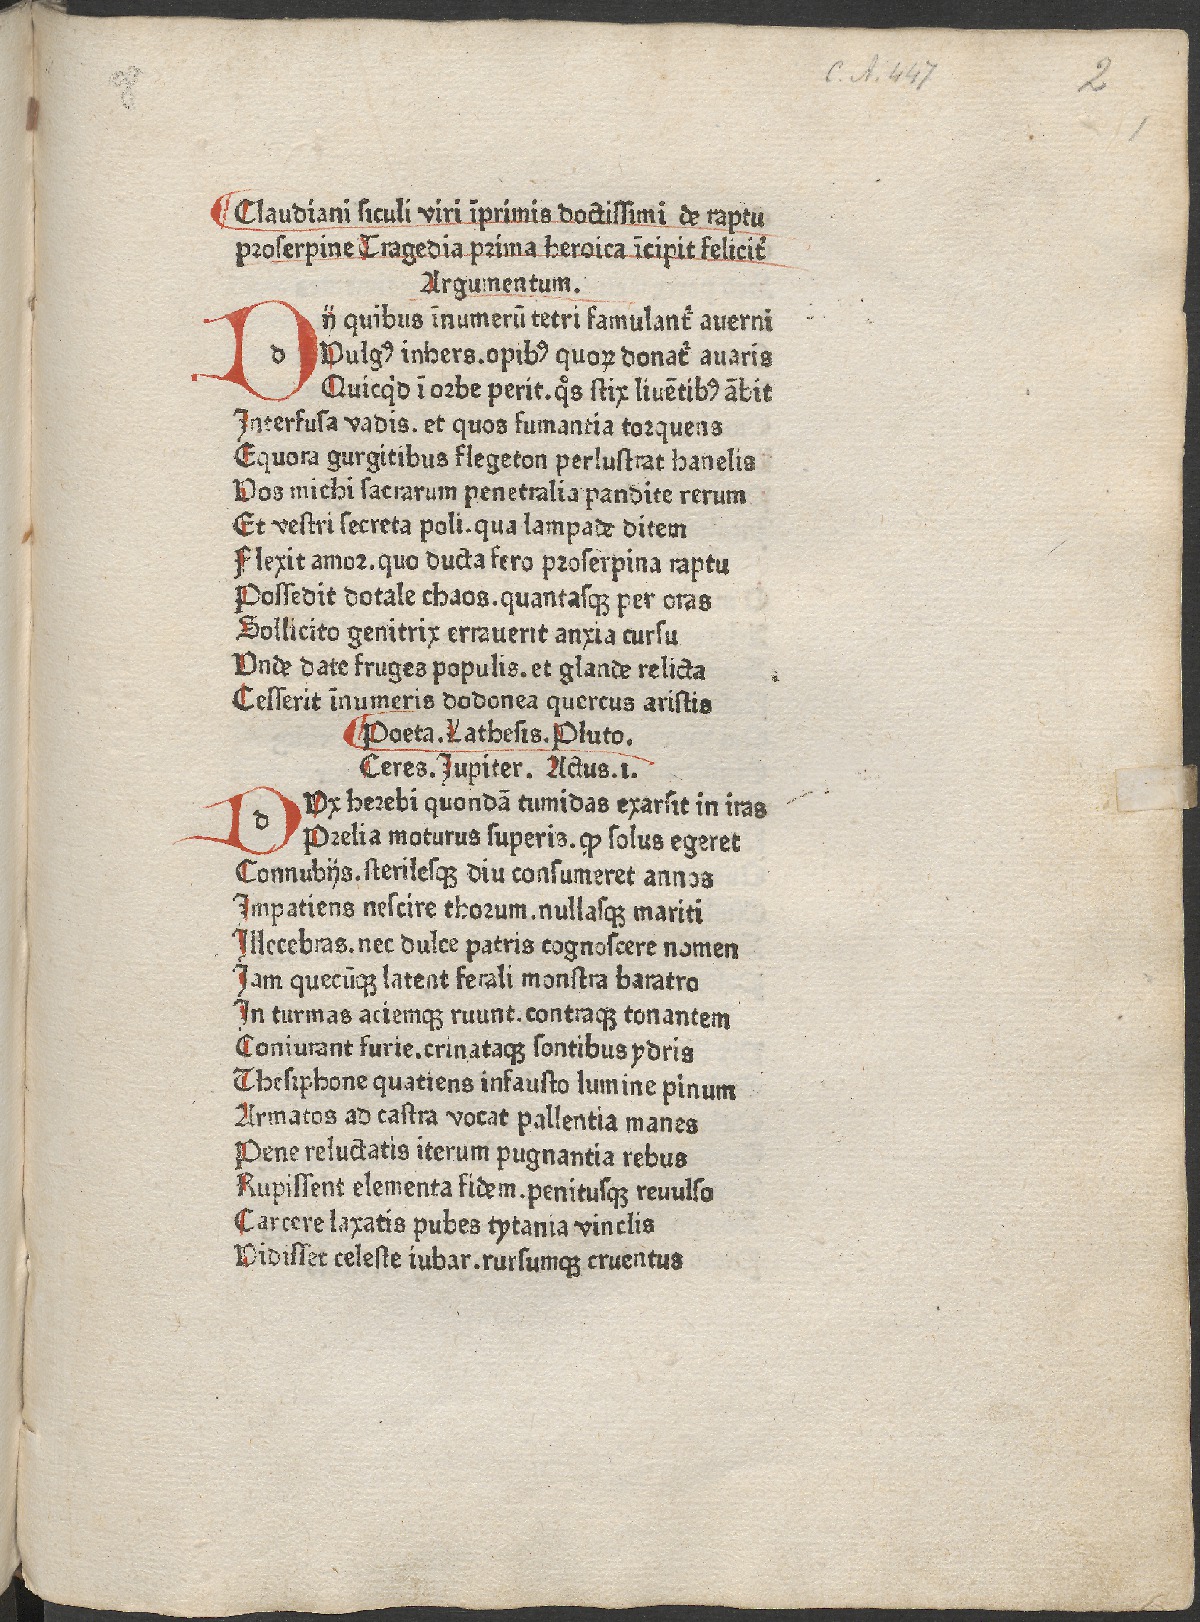 C. A. 447
2
1
Claudiani siculi viri īprimis doctissimi de raptu
proserpine Tragedia prima heroica īcipit felicit᷑
Argumentum.
Dij quibus īnumerū tetri famulant᷑ auerni
Vulgꝰ inhers. opibꝰ quoꝝ donat᷑ auaris
Quicqͥd ī orbe perit. qͦs stix liuētibꝰ ābit
Interfusa vadis. et quos fumantia torquens
Equora gurgitibus flegeton perlustrat hanelis
Vos michi sacrarum penetralia pandite rerum
Et vestri secreta poli. qua lampade ditem
Flexit amor. quo ducta fero proserpina raptu
Possedit dotale chaos. quantasqꝫ per oras
Sollicito genitrix errauerit anxia cursu
Vnde date fruges populis. et glande relicta
Cesserit īnumeris dodonea quercus aristis
Poeta. Lathesis. Pluto.
Ceres. Jupiter. Actus. 1.
DVx herebi quondā tumidas exarsit in iras
Prelia moturus superis. ꝙ solus egeret
Connubijs. sterilesqꝫ diu consumeret annos
Impatiens nescire thorum. nullasqꝫ mariti
Illecebras. nec dulce patris cognoscere nomen
Jam quecūqꝫ latent ferali monstra baratro
In turmas aciemqꝫ ruunt. contraqꝫ tonantem
Coniurant furie. crinataqꝫ sontibus ydris
Thesiphone quatiens infausto lumine pinum
Armatos ad castra vocat pallentia manes
Pene reluctatis iterum pugnantia rebus
Rupissent elementa fidem. penitusqꝫ reuulso
Carcere laxatis pubes tytania vinclis
Vidisset celeste iubar. rursumqꝫ cruentus